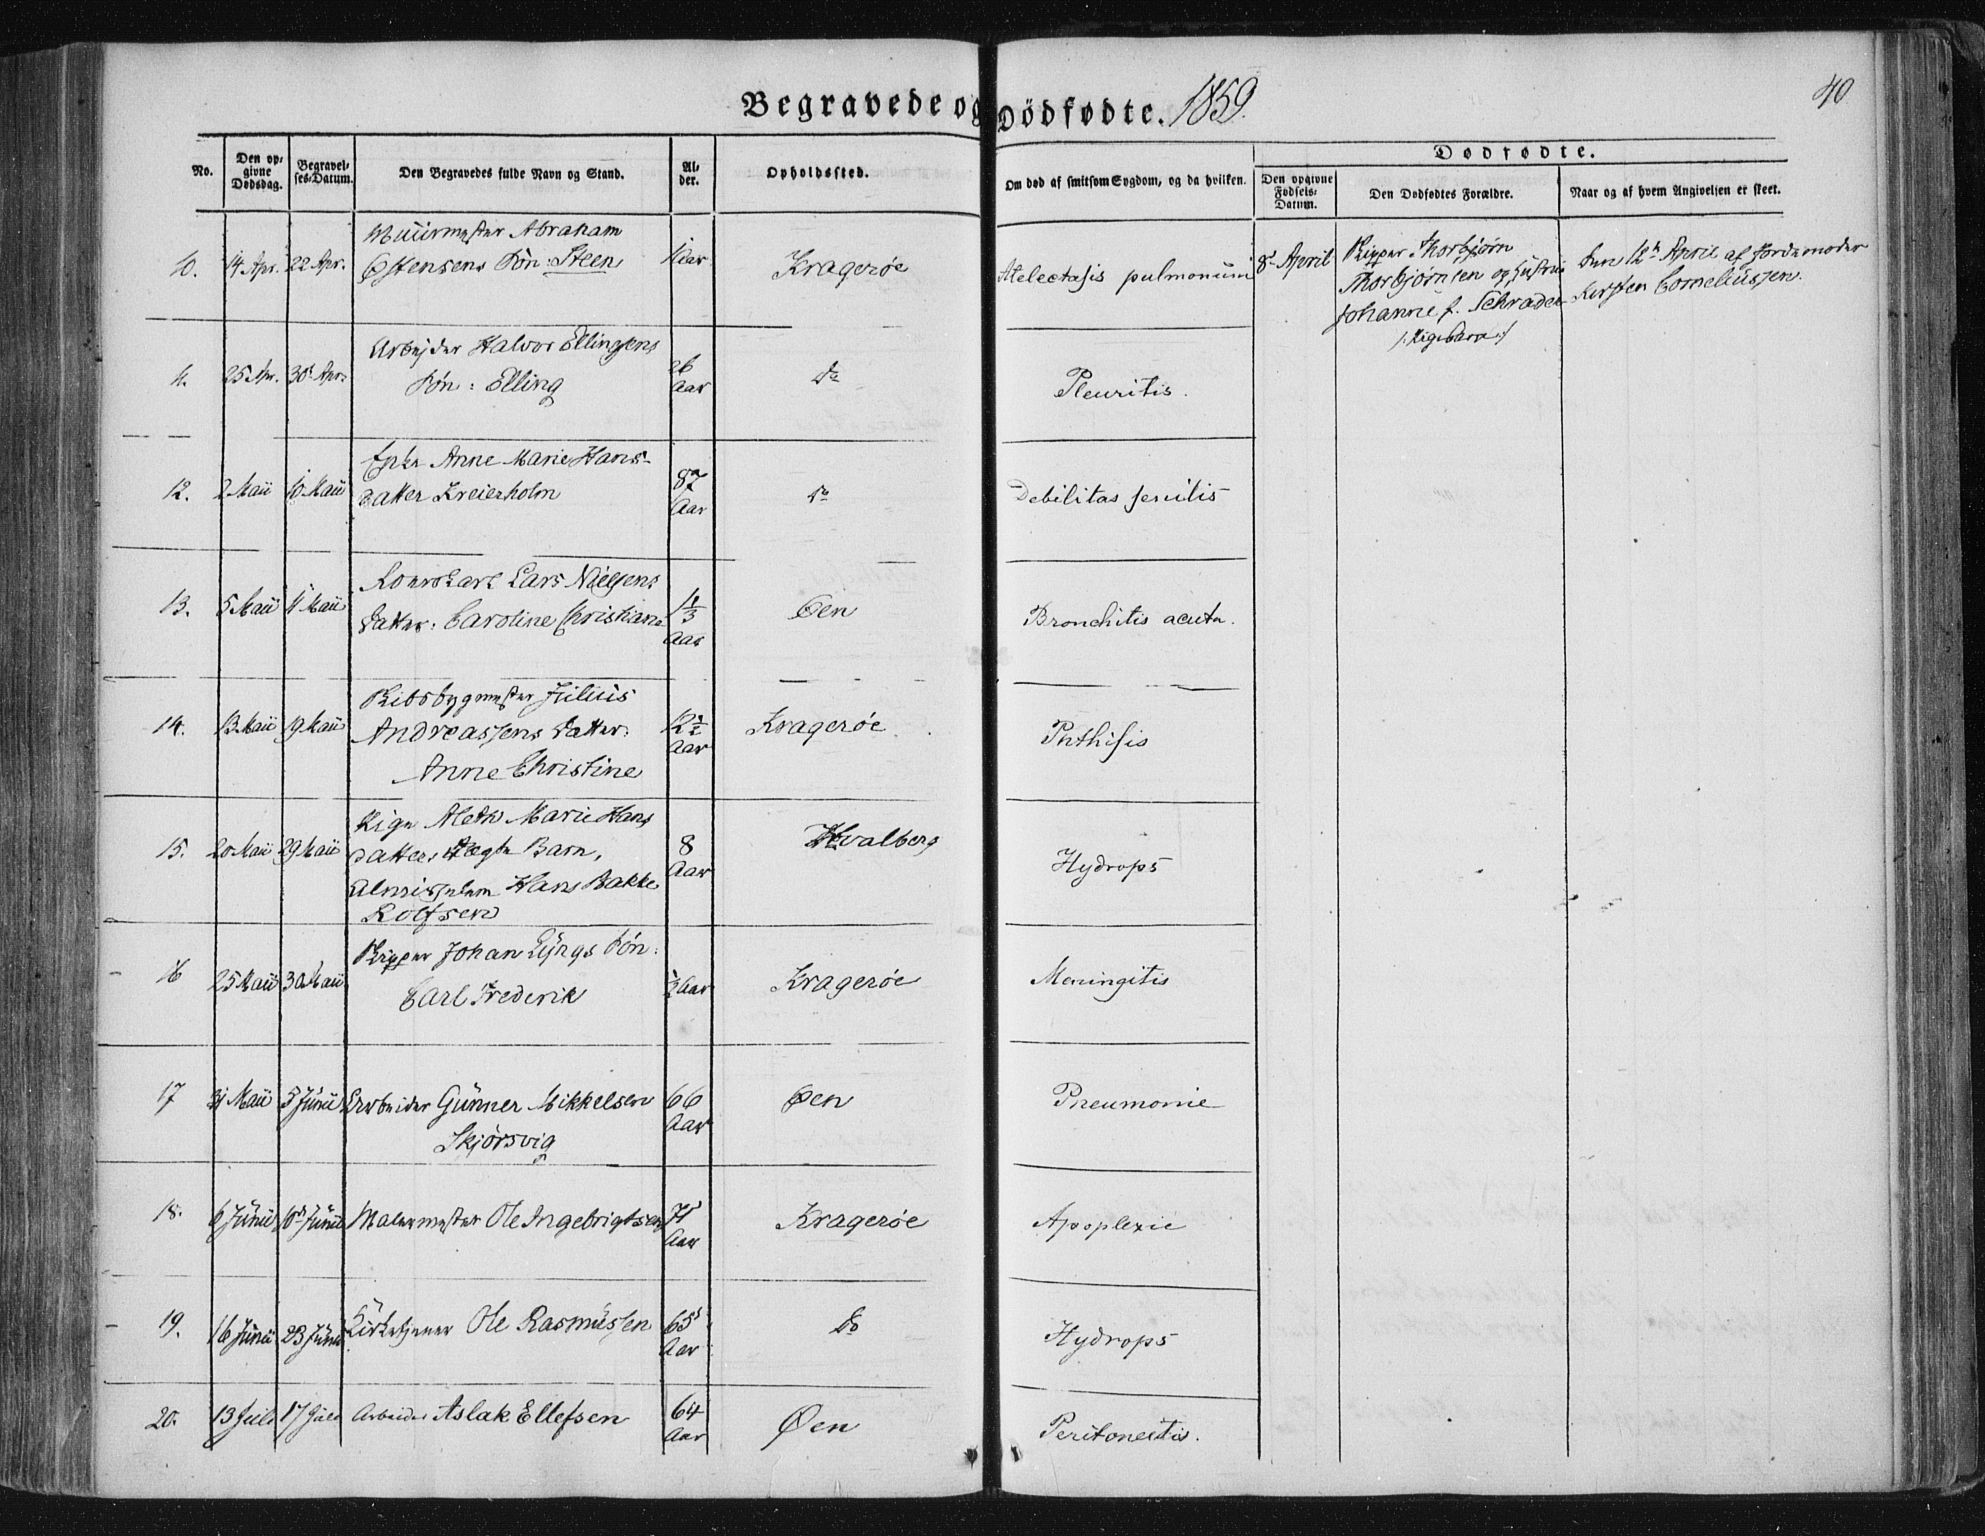 Begravede og Dödfødte. 1859.
40
No.
Den opgivne Dødsdag.
Begravelses-Datum.
Den Begravedes fulde Navn og Stand.
Alder.
Opholdssted.
Om død af smitsom Sygdom, og da hvilken.
Dødfødte.
Den opgivne Fødsels-Datum.
Den Dødfødtes Forældre.
Naar og af hvem Angivelsen er skeet.
10. 14 Apr. 22 Apr. Muurmester Abraham
Ostensens Søn: Steen
Kragerøe
Atelectasis pulmonum
8de April
Skipper Thorbjørn
Thorbjørnsen og Hustrue
Johanne f. Schrader
/: Pigebarn :/
Den 12te April af Jordemoder
Kirsten Corneliussen.
11. 25 Apr. 30 Apr. Arbejder Halvor Ellingsens
Søn: Elling
26
Aar
do
Pleuritis.
12. 2 Maii 10 Maii Enke Anne Marie Hans-
datter Kreierholm
87
Aar
do
Debilitas senilis
13. 5 Maii 11 Maii Lars Nielsens
Datter: Caroline Christiane
Aar
Øen
Bronchitis acuta.
14. 13 Maii 19 Maii Skibsbygmester Julius
Andreassens Datter:
Anne Christine
12½
Aar
Kragerøe
Phthisis
15. 20 Maii 29 Maii Pige Aleth Marie Hans
datters uægte Barn,
Almisselem Hans Bakke
Rolfsen
8
Aar
Hvalberg
Hydrops
16 25 Maii 30 Maii Skipper Johan Lyngs Søn:
Carl Frederik
Aar
Kragerøe
Meningitis
17 31 Maii 5 Junii Arbeider Gunner Mikkelsen
Skjørsvig
66
Aar
Øen
Pneumonie
18. 6 Junii 10de Junii Malermester Ole Ingebrigtsen
71
Aar
Kragerøe
Apoplexie
19. 16 Junii 23 Junii Kirketjener Ole Rasmussen
65
Aar
do
Hydrops
20. 13 Juli 17 Juli Arbeider Aslak Ellefsen
64
Aar
Øen
Peritoneitis.